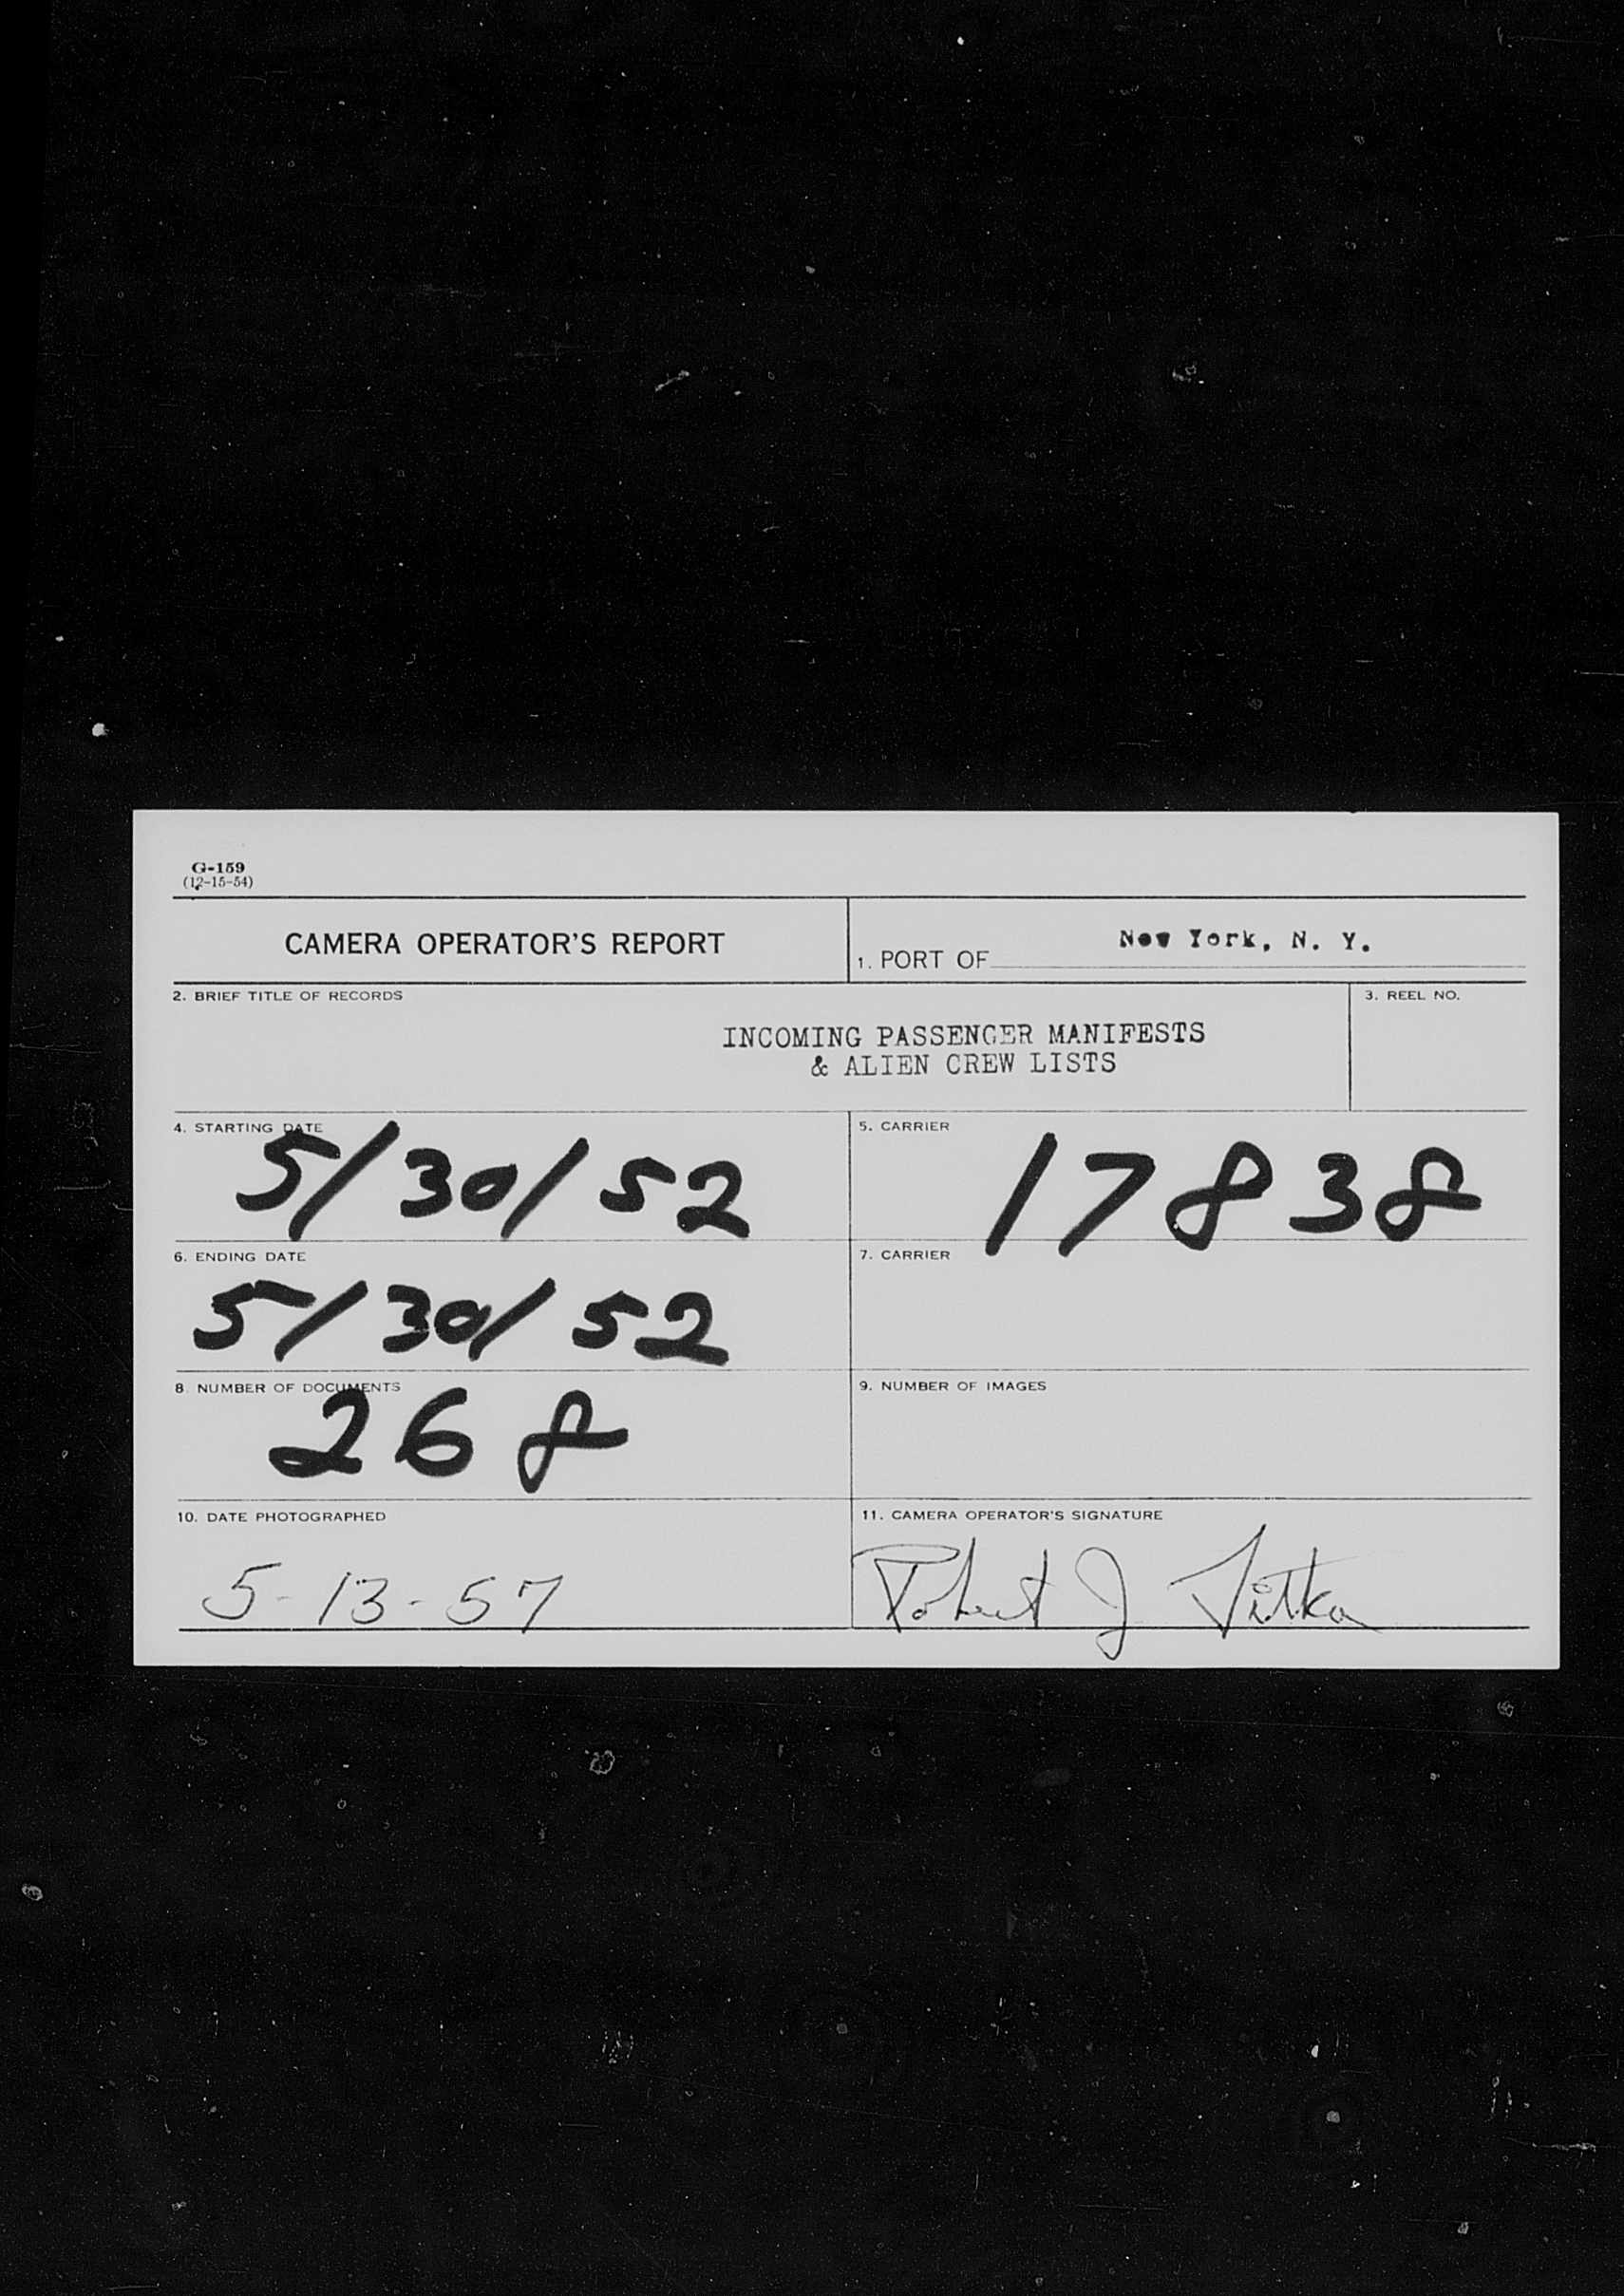 G-159
(12-15-54)
CAMERA OPERATOR'S REPORT
1. PORT OF New York, N. Y.
2. BRIEF TITLE OF RECORDS
3. REEL NO.
INCOMING PASSENGER MANIFESTS
& ALIEN CREW LISTS
4. STARTING DATE
5/30/52
5. CARRIER
17838
6. ENDING DATE
5/30/52
7. CARRIER
8. NUMBER OF DOCUMENTS
268
9. NUMBER OF IMAGES
10. DATE PHOTOGRAPHED
5-13-57
11. CAMERA OPERATOR'S SIGNATURE
Robert J